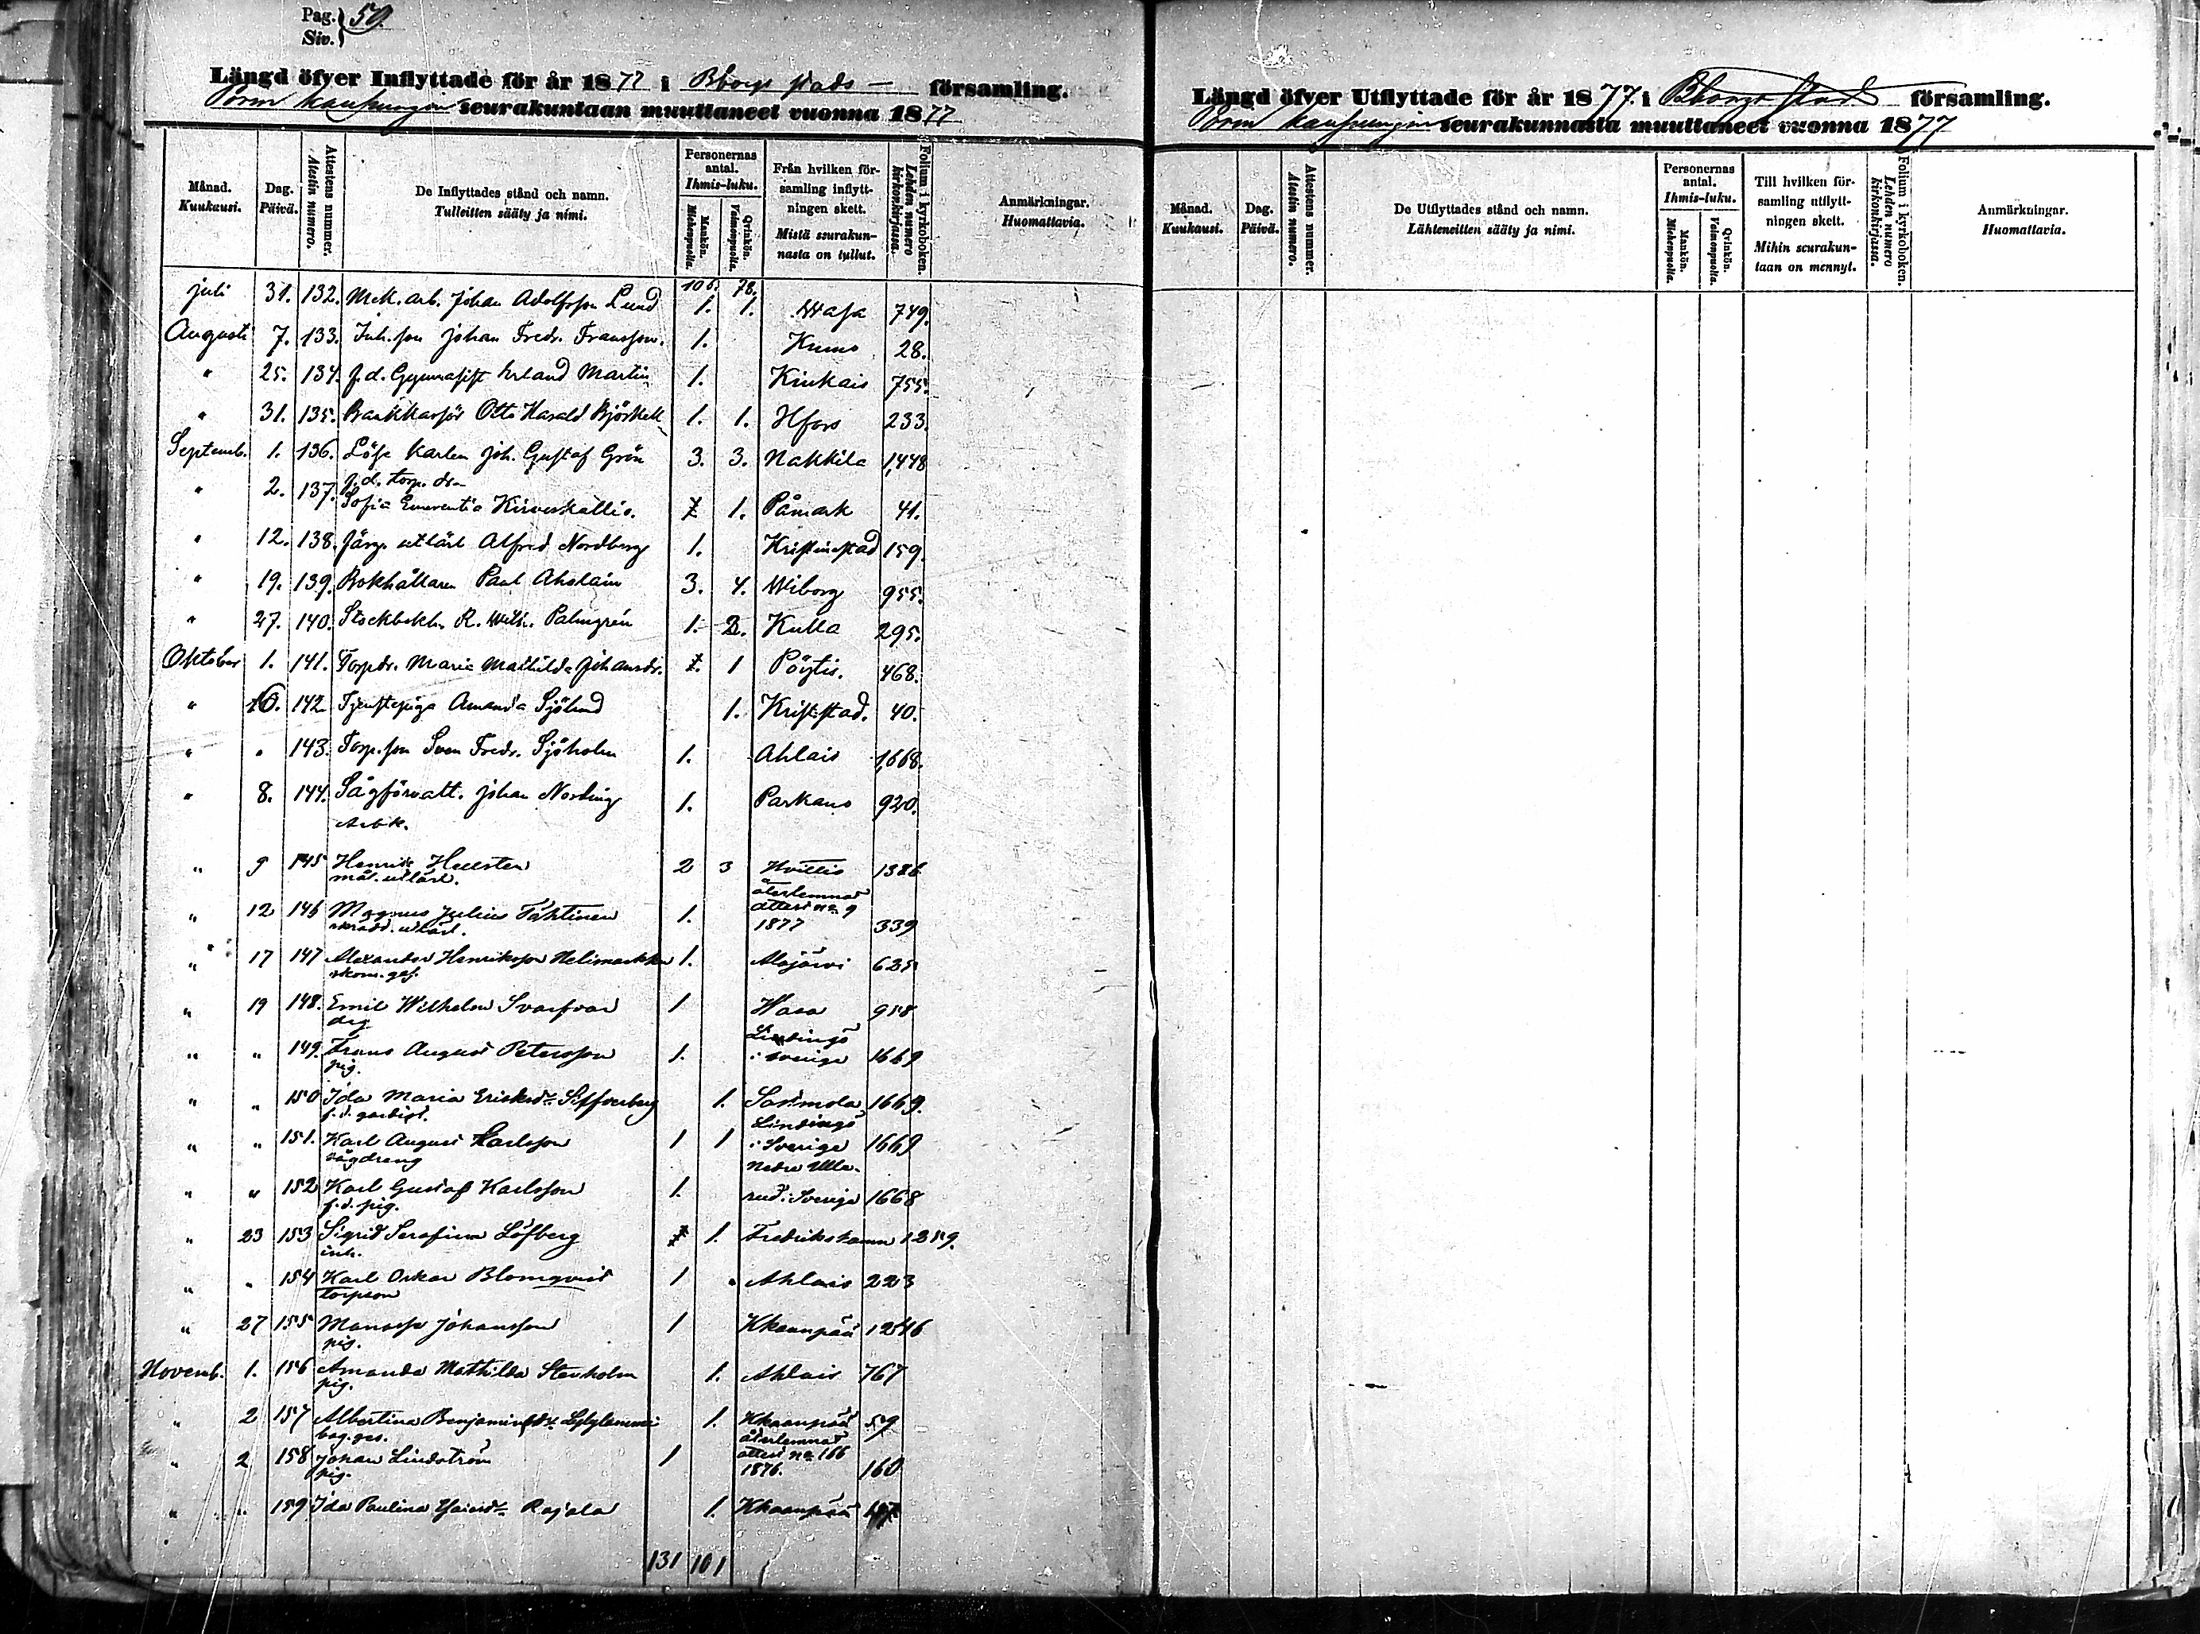 Pag. 50.
Siv.
Längd öfver Inflyttade för år 1877 i Bborgs stads församling.
Porin kaupungin seurakuntaan muuttaneet vuonna 1877
Månad. Kuukausi.
Dag. Päivä.
Attestens nummer. Atestin numero.
De Inflyttades stånd och namn. Tulleitten sääty ja nimi.
Personernas antal. Ihmis-luku.
Mankön. Miehenpuolia.
Qvinkön. Vaimonpuolia.
Från hvilken församling inflyttningen skett. Mistä seurakunnasta on tullut.
Folium i kyrkoboken. Lehden numero kirkonkirjassa.
Anmärkningar. Huomattavia.
106. 78.
Juli 31. 132. Mek. arb. Johan Adolfsson Lund 1. 1. Wasa 749.
Augusti 7. 133. Inh. son Johan Fredr. Fransson. 1. Kumo 28.
" 25. 134. f.d. Gymnasist Erland Martin 1. Kiukais 755.
" 31. 135. Bankkassör Otto Harald Björkell 1. 1. Hfors 233.
Septemb. 1. 136. Löse karlen Joh. Gustaf Grön 3. 3. Nakkila 1,448
f.d. torp. dr
" 2. 137. Sofia Emerentia Kirveskallio. 1. Påmark 41.
" 12. 138. Färg. utlärl Alfred Nordberg 1. Kristinestad 159.
" 19. 139. Bokhållaren Paul Ahslain 3. 4. Wiborg 955.
" 27. 140. Stockbokh. R. Wilh. Palmgrén 1. 2. Kulla 295.
Oktober 1. 141. Torpdr. Maria Mathilda Johansdr. 1 Pöytis. 468.
" 10. 142 Tjenstepiga Amanda Sjölund 1. Krististad. 40.
" " 143. Torp. son Sven Fredr. Sjöholm 1. Ahlais 1,668.
" 8. 144. Sågförvalt. Johan Norling 1. Parkano 920.
Arbk.
" 9 145 Henrik Hellsten 2 3 Hvittis 1386
mål. utlärl. återlemnat
" 12 146 Magnus Julius Tähtinen 1. attest no 9 1877 339
skradd. utlärl.
" 17 147 Alexander Henriksson Helimarkka 1. Alajärvi 625
skom. ges.
" 19 148. Emil Wilhelm Svarfvar 1 Wasa 958
drg Lindingö
" " 149. Frans August Petersson 1. i Sverige 1669
pig.
" " 150 Ida Maria Eriksdr Silfverberg 1. Sastmola 1669.
f.d. gardist. Lindingö
" " 151. Karl August Karlsson 1 1 i Sverige 1669
sågdreng Nedre Ulle-
" " 152 Karl Gustaf Karlsson 1. rud i Sverige 1668
f.d. pig.
" 23 153 Sigrid Serafina Löfberg 1. Fredrikshamn 1259.
inh.
" " 154 Karl Oskar Blomqvist 1 Ahlais 223
torpson
" 27 155 Manasse Johansson 1 Kkaanpää 1246
pig.
Novemb. 1. 156 Amanda Mathilda Stenholm 1. Ahlais 767
pig.
" 2 157 Albertina Benjaminsdr 1. Kkaanpää 59
bag. ges. återlemnat
" 2 158 Johan Lindström 1 attest no 166 1876. 160
pig.
" " 159 Ida Paulina Rajala 1. Kkaanpää
131 101
Längd öfver Utflyttade för år 1877. i Bborgs stads församling.
Porin kaupungin seurakunnasta muuttaneet vuonna 1877
Månad. Kuukausi.
Dag. Päivä.
Attestens nummer. Atestin numero.
De Utflyttades stånd och namn. Lähteneitten sääty ja nimi.
Personernas antal. Ihmis-luku.
Mankön. Miehenpuolia.
Qvinkön. Vaimonpuolia.
Till hvilken församling utflyttningen skett. Mihin seurakuntaan on mennyt.
Folium i kyrkoboken. Lehden numero kirkonkirjassa.
Anmärkningar. Huomattavia.